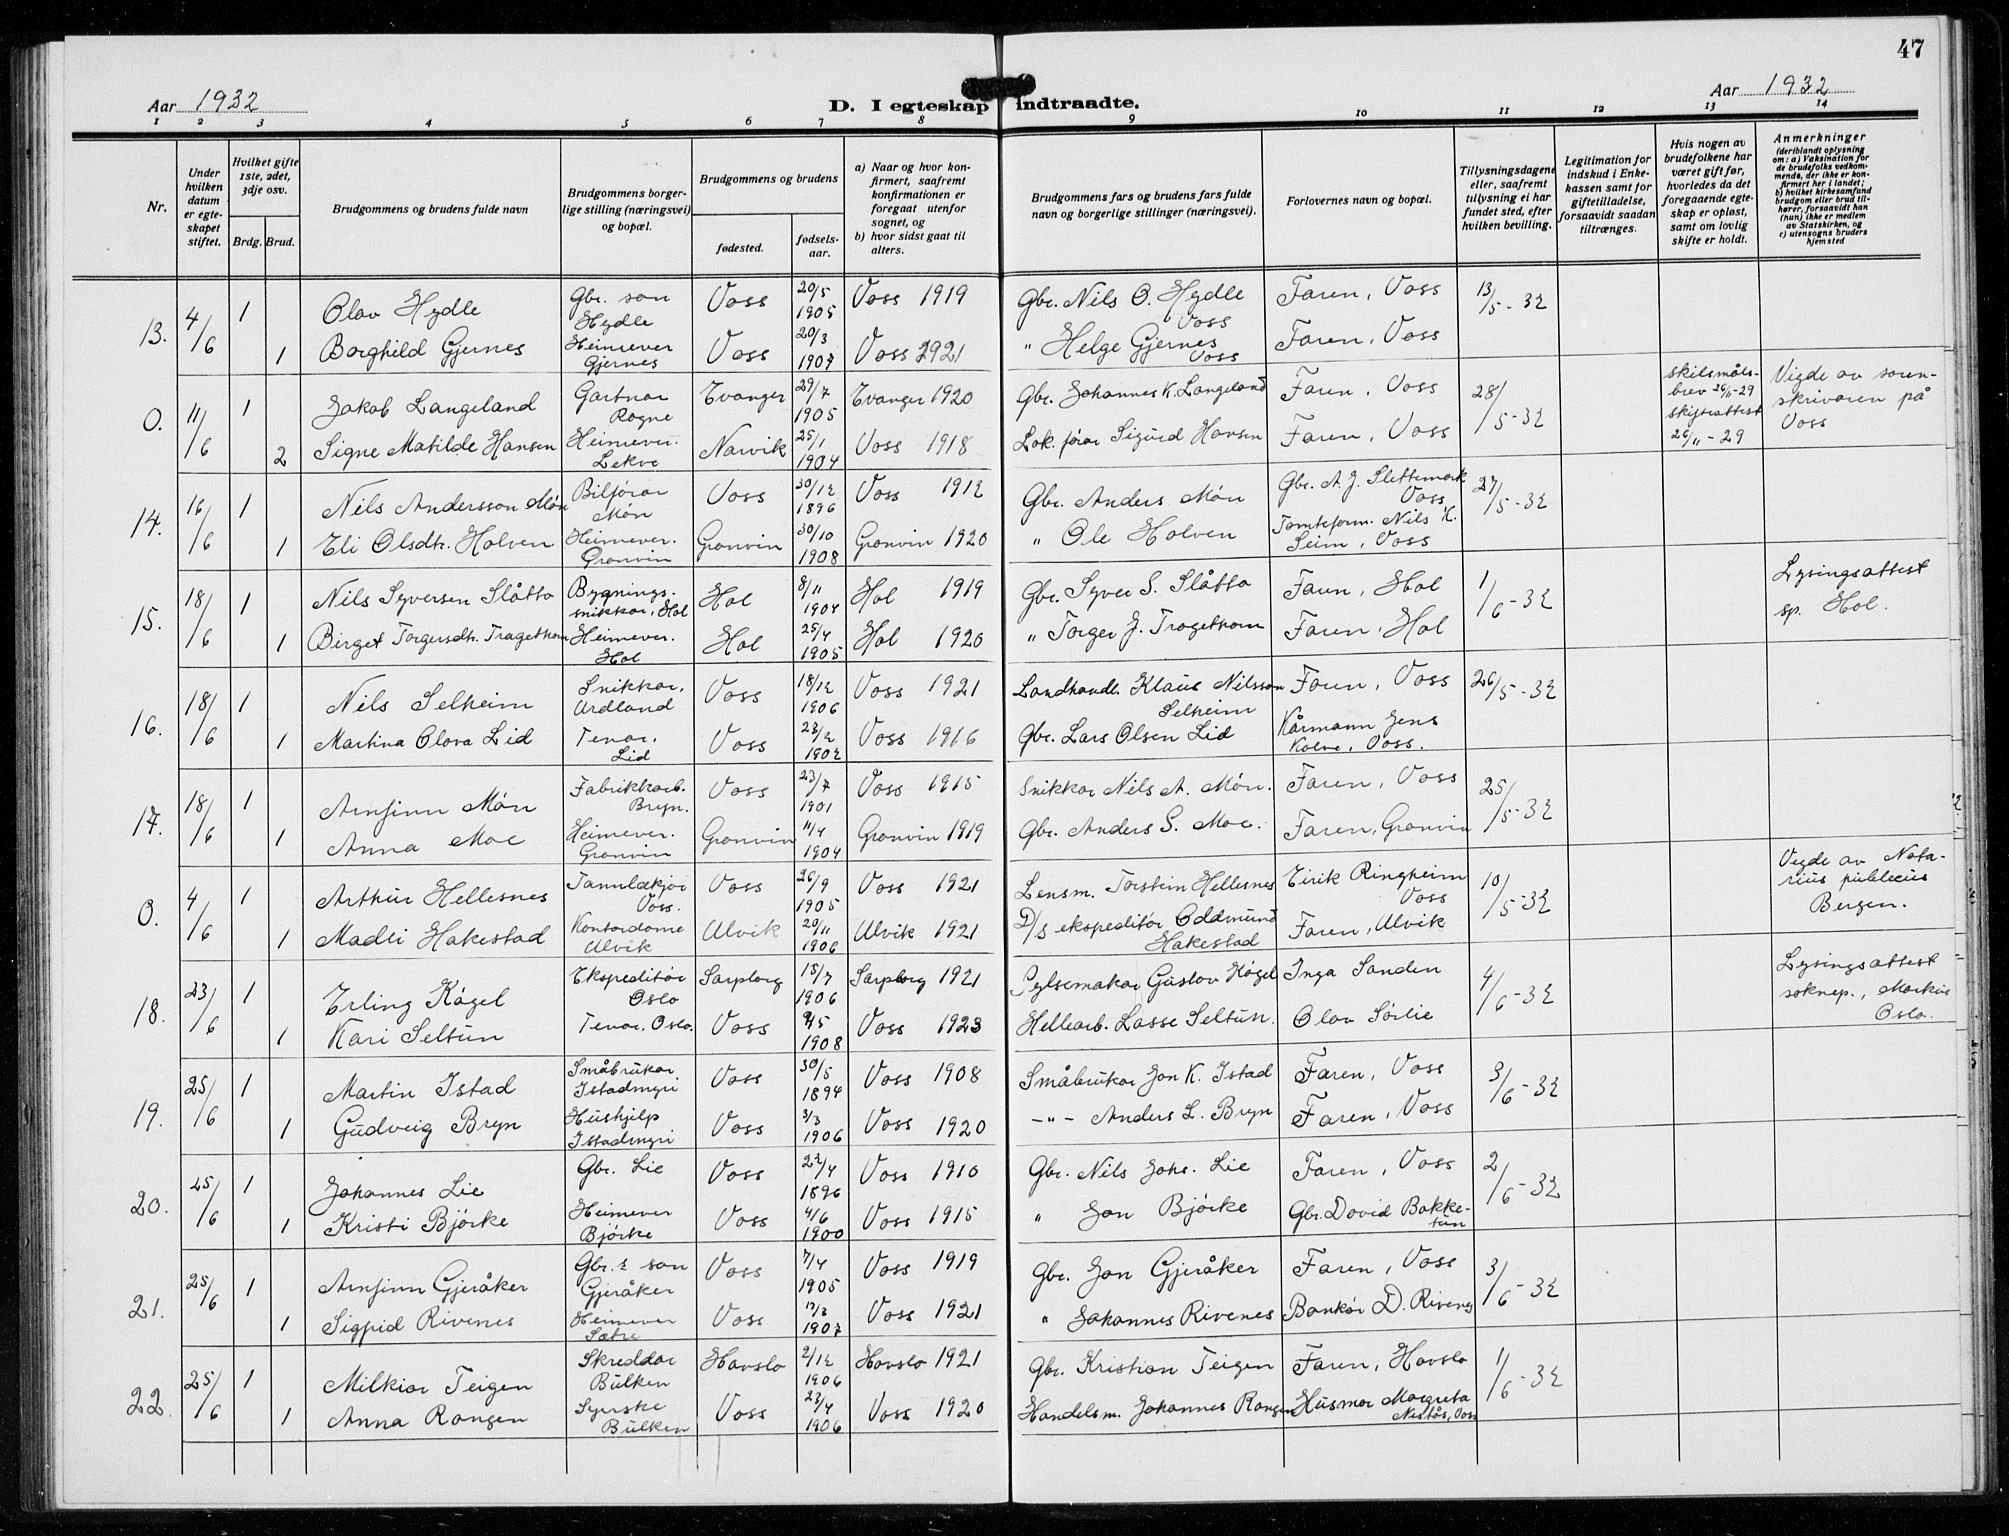 47
Aar 1932
D. I egteskap indtraadte.
Aar 1932
1 2 3 4 5 6 7 8 9 10 11 12 13 14
Nr.
Under hvilken datum er egteskapet stiftet.
Hvilket gifte 1ste, 2det, 3dje osv.
Brdg. Brud.
Brudgommens og brudens fulde navn
Brudgommens borgerlige stilling (næringsvei) og bopæl.
Brudgommens og brudens
fødested.
fødselsaar.
a) Naar og hvor konfirmert, saafremt konfirmationen er foregaat utenfor sognet, og
b) hvor sidst gaat til alters.
Brudgommens fars og brudens fars fulde navn og borgerlige stillinger (næringsvei).
Forlovernes navn og bopæl.
Tillysningsdagene eller, saafremt tillysning ei har fundet sted, efter hvilken bevilling.
Legitimation for indskud i Enkekassen samt for giftetilladelse, forsaavidt saadan tiltrænges.
Hvis nogen av brudefolkene har været gift før, hvorledes da det foregaaende egteskap er opløst, samt om lovlig skifte er holdt.
Anmerkninger
(deriblandt oplysning om: a) Vaksination for de brudefolks vedkommende, der ikke er konfirmert her i landet; b) hvilket kirkesamfund brudgom eller brud tilhører, forsaavidt han (hun) ikke er medlem av Statskirken, og c) utensogns bruders hjemsted
13. 4/6 1 Olav Hydle Gbr. son Hydle Voss 20/5 1905 Voss 1919 Gbr. Nils O. Hydle Voss Faren, Voss 13/5-32
1 Borghild Gjernes Heimever Gjernes Voss 20/3 1907 Voss 2921 " Helge Gjernes Voss Faren, Voss
0. 11/6 1 Jakob Langeland Gartnar Rogne Evanger 29/7 1905 Evanger 1920 Gbr. Johannes K. Langeland Faren, Voss 28/5-32 Skilsmåls-brev 26/11-29 skifteattest 26/11-29 Vigde av soren-skrivaren på Voss
2 Signe Matilde Hansen Heimever. Lekve Narvik 25/1 1904 Voss 1918 Lok.förar Sigurd Hansen Faren, Voss
14. 16/6 1 Nils Andersson Møn Bilførar Møn Voss 30/12 1896 Voss 1912 Gbr. Anders Møn Gbr. A. J. Slettemark Voss 27/5-32
1 Eli Olsdtr. Holven Heimever. Granvin Granvin 30/10 1908 Granvin 1920 " Ole Holven Tomteform. Nils K. Seim, Voss
15. 18/6 1 Nils Syversen Slåtto Bygnings-snikkar, Hol Hol 8/11 1904 Hol 1919 Gbr. Syver S. Slåtto Faren, Hol 1/6-32 Lysingsattest sp. Hol.
1 Birget Torgersdtr. Tragethom Heimever. Hol Hol 25/4 1905 Hol 1920 " Torger J. Tragethom Faren, Hol
16. 18/6 1 Nils Selheim Snikkar, Urdland Voss 18/12 1906 Voss 1921 Landhandl. Klaus Nilsson Selheim Faren, Voss 26/5-32
1 Martina Olava Lid Tenar, Lid Voss 23/2 1902 Voss 1916 Gbr. Lars Olsen Lid Kårmann Jens Kolve, Voss.
17. 18/6 1 Arnfinn Møn Fabrikkarb. Bryn. Voss 23/7 1901 Voss 1915 Snikkar Nils A. Møn. Faren, Voss 25/5-32
1 Anna Moe Heimever. Granvin Granvin 11/4 1904 Granvin 1919 Gbr. Anders S. Moe. Faren, Granvin
0. 4/6 1 Arthur Hellesnes Tannlækjar Voss. Voss 26/9 1905 Voss 1921 Lensm. Torstein Hellesnes Eirik Ringheim Voss 10/5-32 Vigde av Nota-rius publicus Bergen.
1 Madli Hakestad Kontordame Ulvik Ulvik 20/11 1906 Ulvik 1921 D/s ekspeditør Oddmund Hakestad Faren, Ulvik
18. 23/6 1 Erling Kågel Ekspeditør Oslo Sarpsborg 15/7 1906 Sarpsborg 1921 Pylsemakar Gustav Kågel Inga Sanden 4/6-32 Lysingsattest soknep., Markus Oslo.
1 Kari Seltun Tenar, Oslo. Voss 9/5 1908 Voss 1923 Hellearb. Lasse Seltun. Olav Sørlie
19. 25/6 1 Martin Istad Småbrukar Istadmyri Voss 30/5 1894 Voss 1908 Småbrukar Jon K. Istad Faren, Voss 3/6-32
1 Gudveig Bryn Hushjelp Istadmyri Voss 3/3 1906 Voss 1920 -"- Anders L. Bryn Faren, Voss
20. 25/6 1 Johannes Lie Gbr. Lie Voss 22/4 1896 Voss 1910 Gbr. Nils Johs. Lie Faren, Voss 2/6-32
1 Kristi Bjørke Heimever Bjørke Voss 4/6 1900 Voss 1915 " Jon Bjørke Gbr. David Bakke-tun
21. 25/6 1 Arnfinn Gjeråker Gbr. son Gjeråker Voss 7/4 1905 Voss 1919 Gbr. Jon Gjeråker Faren, Voss 3/6-32
1 Sigrid Rivenes Heimever Sætre Voss 17/2 1907 Voss 1921 " Johannes Rivenes Bankør D. Rivenes
22. 25/6 1 Milkior Teigen Skreddar Bulken Havslo 2/12 1906 Havslo 1921 Gbr. Kristian Teigen Faren, Havslo 1/6-32
1 Anna Rongen Syerske Bulken Voss 22/4 1906 Voss 1920 Handelsm. Johannes Rongen Husmor Margreta Nestås, Voss